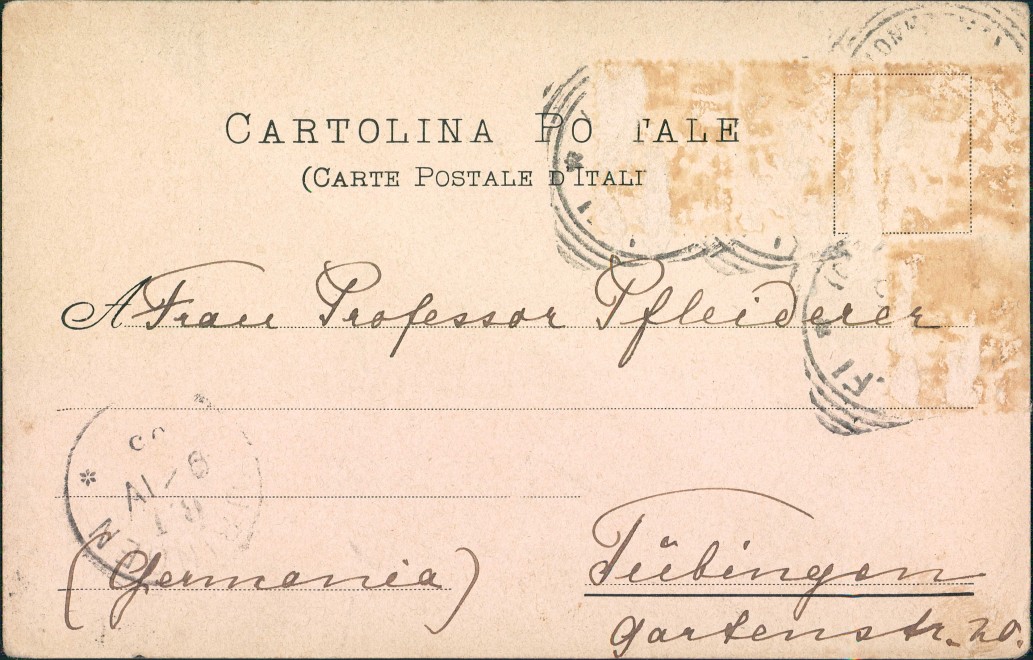 CARTOLINA PO TALE
(CARTE POSTALE D'ITALI
A Frau Professor Pfleiderer
(Germania)
Tübingen
Gartenstr. 20.